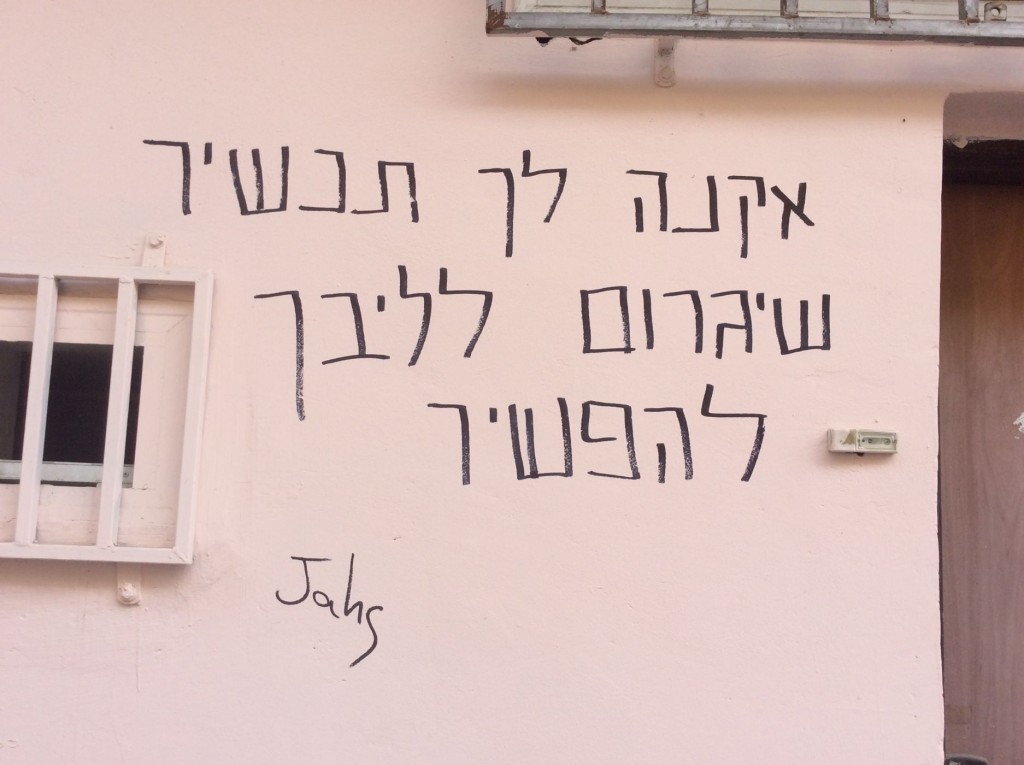 אקנה לך תכשיר
שיגרום לליבך
להפשיר
Jahs